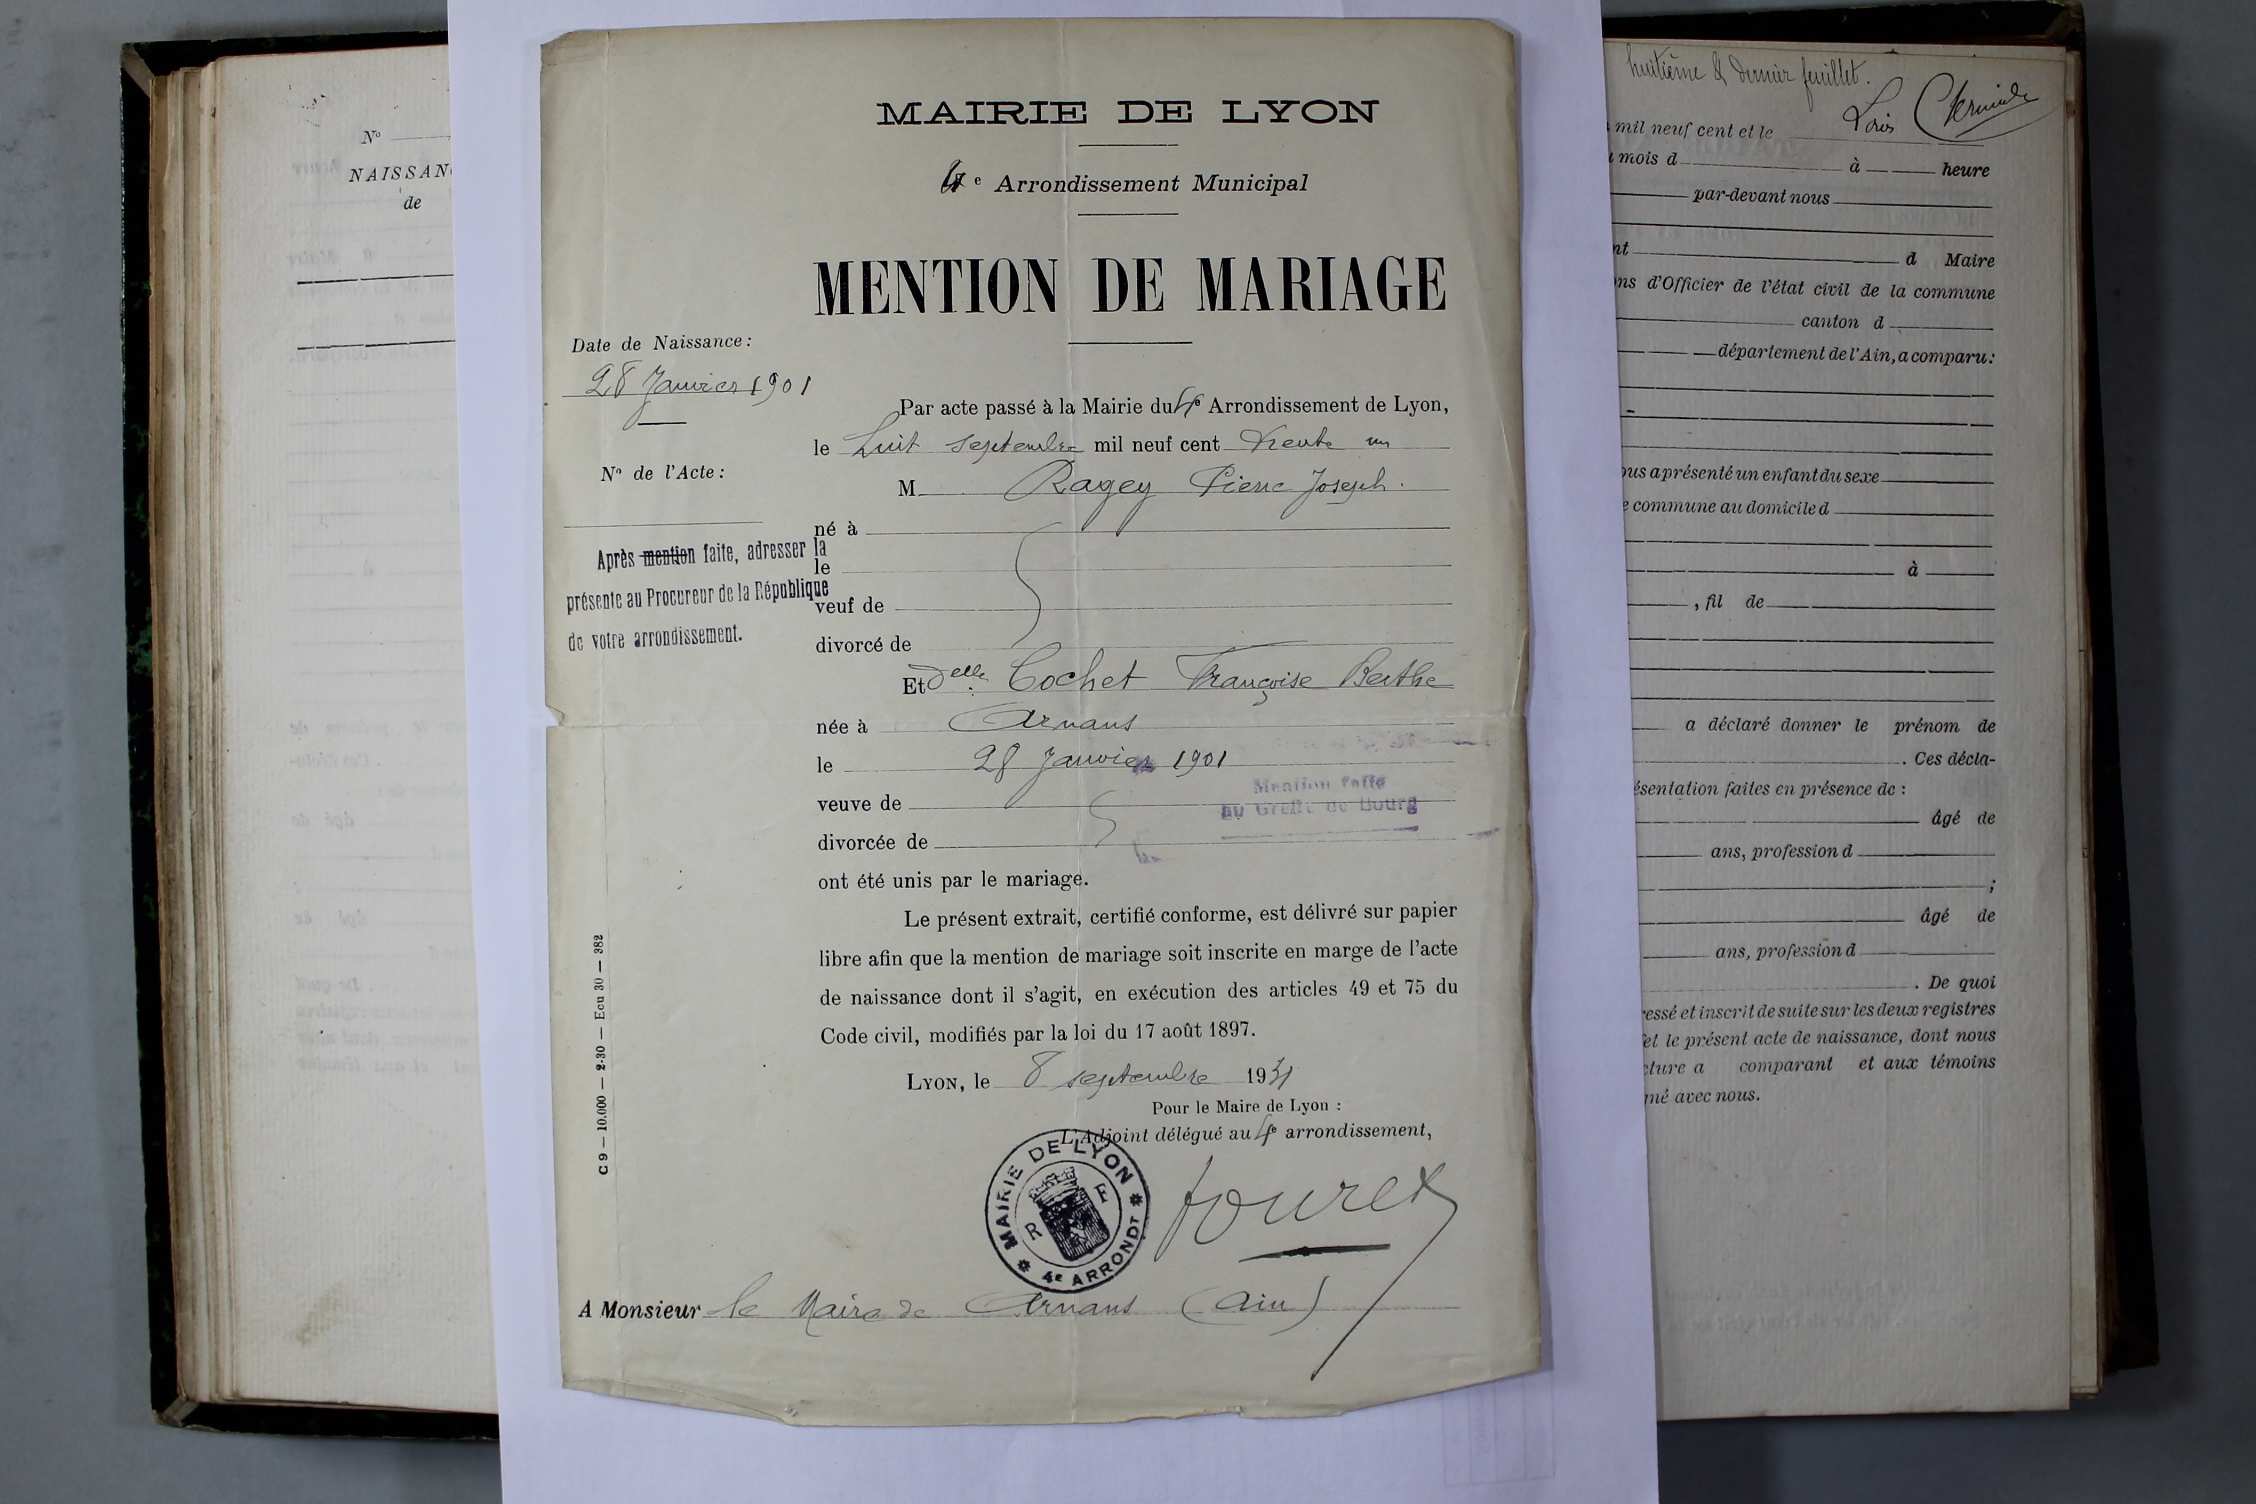 N°
NAISSAN
de
MAIRIE DE LYON
4e Arrondissement Municipal
MENTION DE MARIAGE
Date de Naissance:
28 Janvier 1901
N° de l'Acte:
Après mention faite, adresser la
présente au Procureur de la République
de votre arrondissement.
Par acte passé à la Mairie du 4e Arrondissement de Lyon,
le huit septembre mil neuf cent trente un
M Ragey Pierre Joseph.
né à
le
veuf de
divorcé de
Et Delle Cochet Françoise Berthe
née à Arnans
le 28 Janvier 1901
veuve de
Mention faite
au Greffe de Bourg
divorcée de
ont été unis par le mariage.
Le présent extrait, certifié conforme, est délivré sur papier
libre afin que la mention de mariage soit inscrite en marge de l'acte
de naissance dont il s'agit, en exécution des articles 49 et 75 du
Code civil, modifiés par la loi du 17 août 1897.
LYON, le 8 septembre 1931
Pour le Maire de Lyon :
L'Adjoint délégué au 4e arrondissement,
MAIRIE DE LYON
R F
4E ARRONDT
A Monsieur le Maire de Arnans (Ain)
C 9 — 10.000 — 2-30 — Ecu 30 — 382
huitième & dernier feuillet.
Loris
mil neuf cent et le
mois d à heure
par-devant nous
nt d Maire
ns d'Officier de l'état civil de la commune
canton d
département de l'Ain, a comparu:
ous a présenté un enfant du sexe
e commune au domicile d
à
, fil de
a déclaré donner le prénom de
. Ces décla-
ésentation faites en présence de :
âgé de
ans, profession d
;
âgé de
ans, profession d
. De quoi
essé et inscrit de suite sur les deux registres
et le présent acte de naissance, dont nous
cture a comparant et aux témoins
né avec nous.